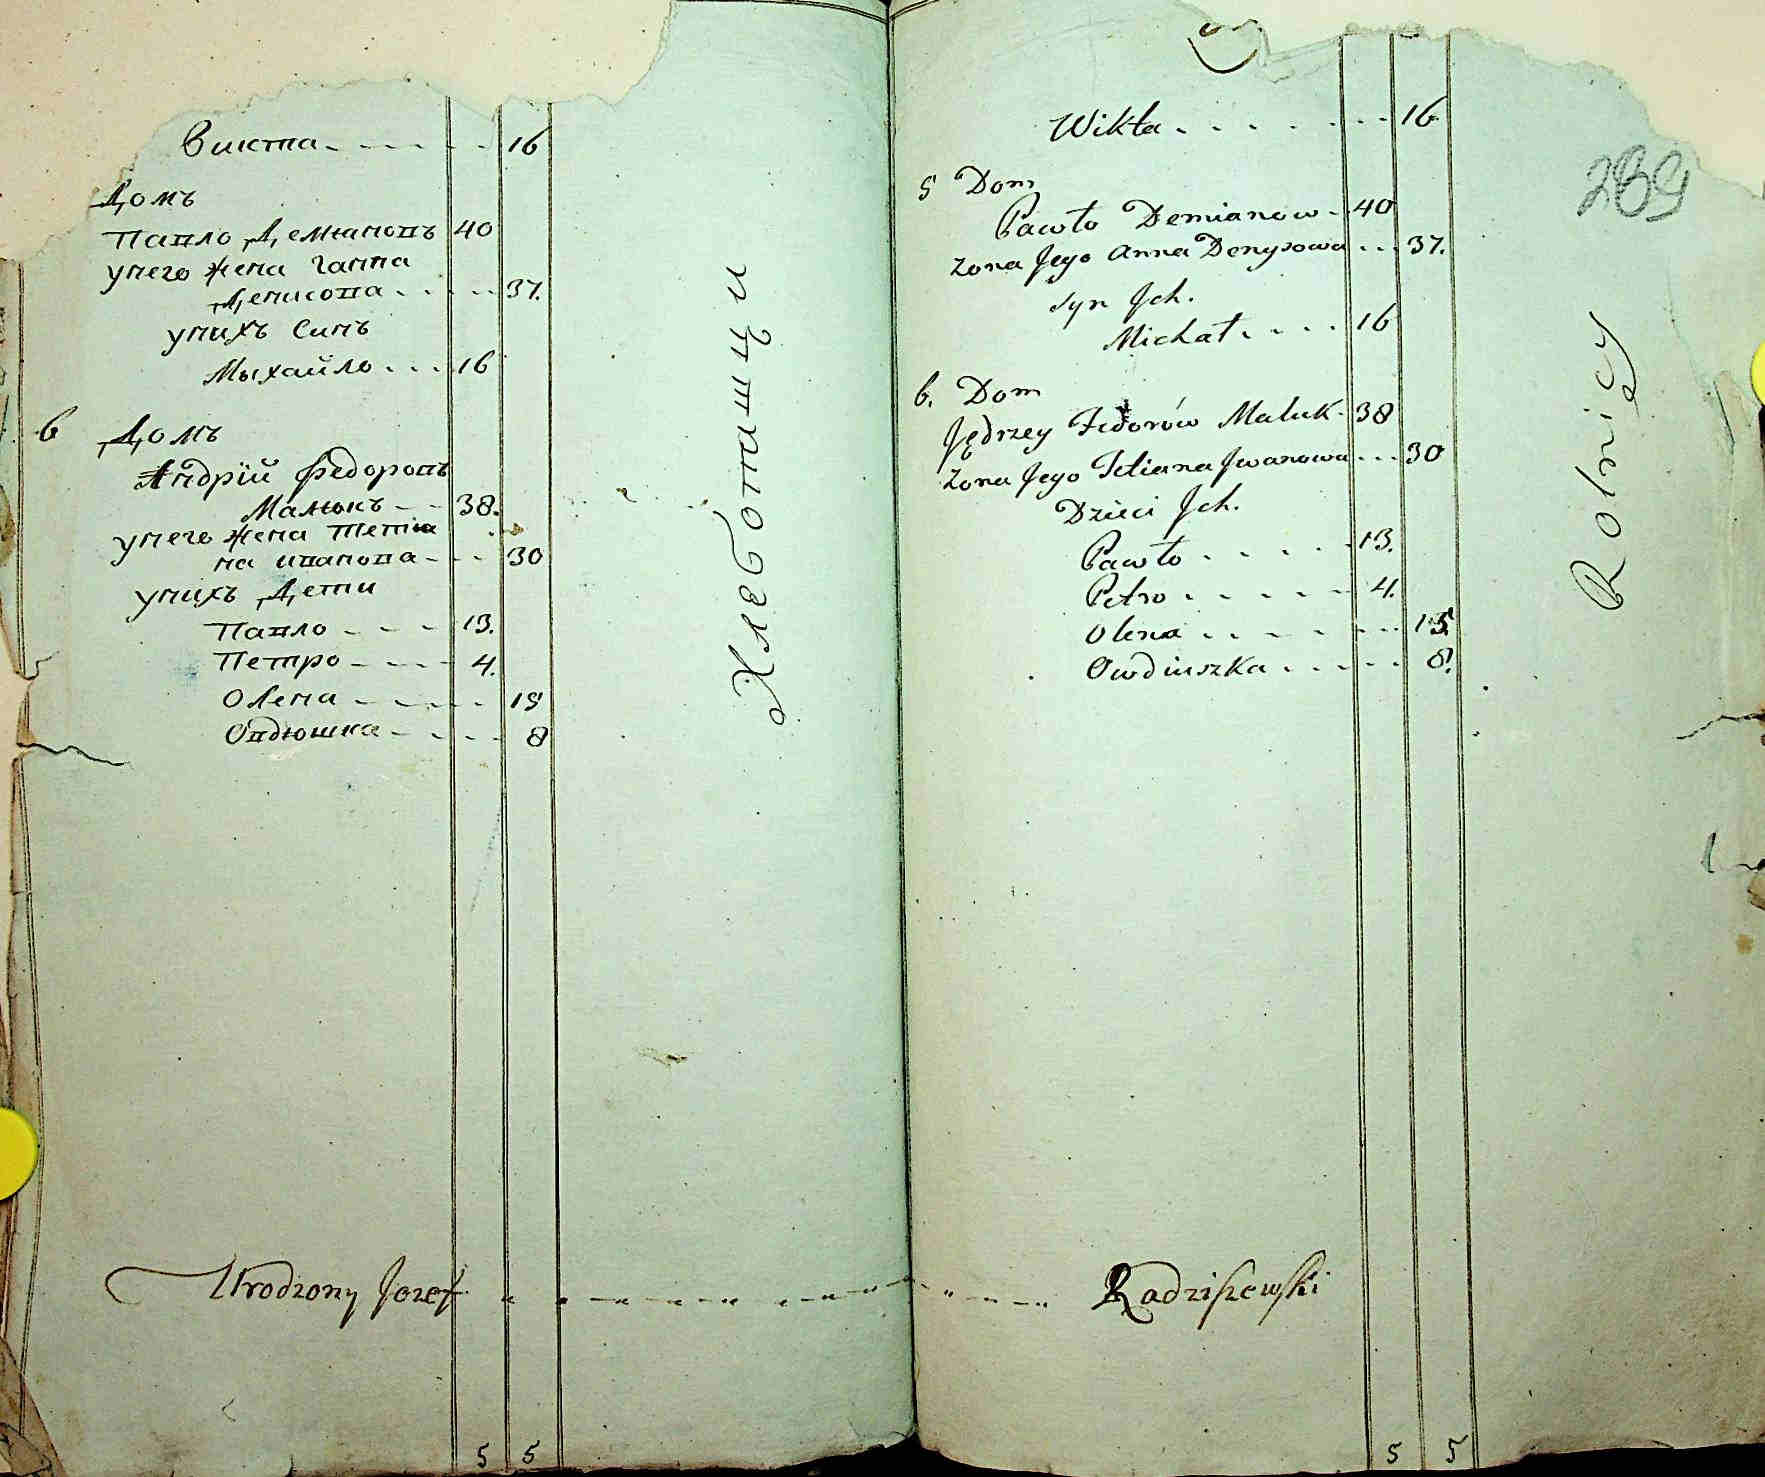 Викта - - - - - - 16
Домъ
Павло Демяновъ 40
унего жена Ганна
Денисова - - - - 37.
унихъ Синъ
Мыхайло - - - 16
6 Домъ
Андрій Федоровъ
Малюкъ - - - 38.
унего жена Тетия
на иванова - - - 30
унихъ Дети
Павло - - - 13.
Петро - - - - 4.
Олена - - - - - 15
Овдюшка - - - - 8
Хлеботашци
Urodzony Jozef
5 5
Wikta . . . . . . . 16
239
5 Dom
Pawło Demianow - 40
Zona Jego Anna Denysowa . . . 37.
syn Jch.
Michał . . . . 16
6. Dom
Jędrzey Fedorów Maluk - 38
Zona Jego Tetiana Jwanowa . . . 30
Dzieci Jch.
Pawło . . . . - 13.
Petro . . . . . - 4.
Olena . . . . . . . 15
Owdiuszka . . . . . 8.
Rolnicy
Radziszewski
5 5